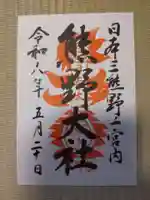 日本三熊野之宮内
熊野大社
令和八年 五月二十日